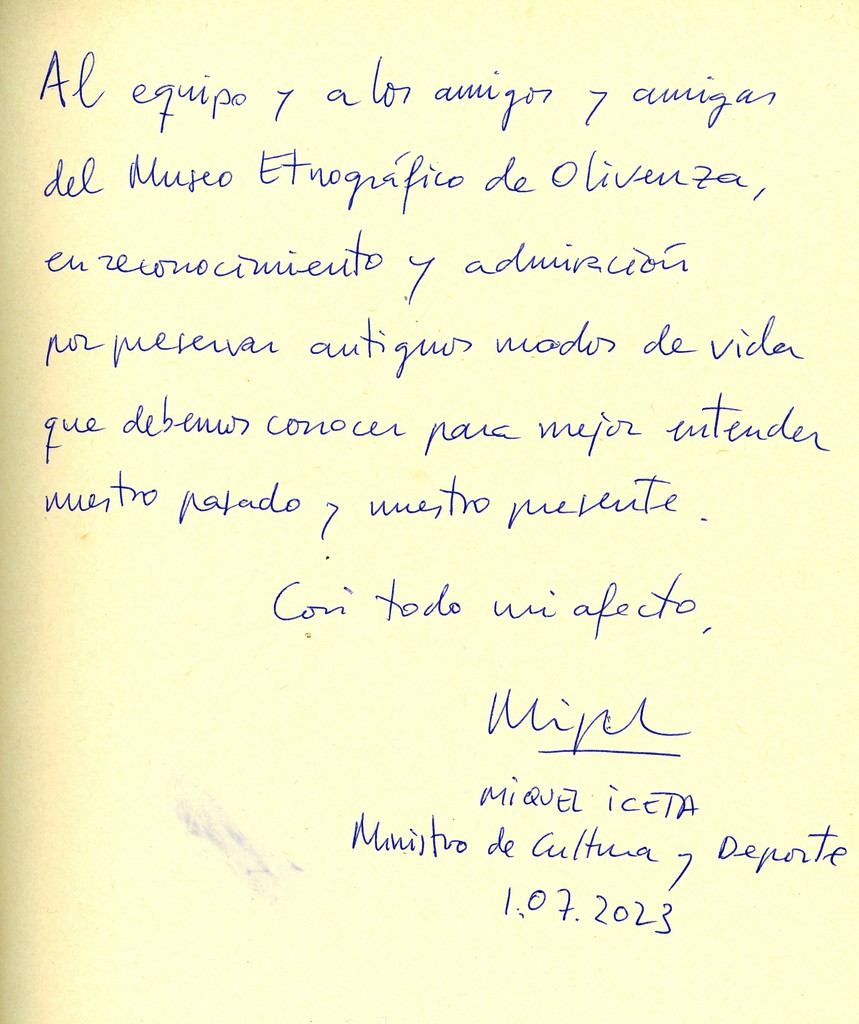 Al equipo y a los amigos y amigas
del Museo Etnográfico de Olivenza,
en reconocimiento y admiración
por preservar antiguos modos de vida
que debemos conocer para mejor entender
nuestro pasado y nuestro presente.
Con todo mi afecto,
Miquel
MIQUEL ICETA
Ministro de Cultura y Deporte
1.07.2023